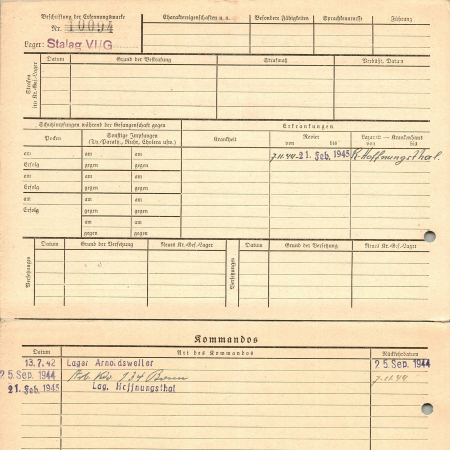 Beschriftung der Erkennungsmarke
Nr. 10094
Lager: Stalag VI/G
Charaktereigenschaften u. a.
Besondere Fähigkeiten
Sprachkenntnisse
Führung
Strafen im Kr.-Gef.-Lager
Datum
Grund der Bestrafung
Strafmaß
Verbüßt, Datum
Schutzimpfungen während der Gefangenschaft gegen
Erkrankungen
Pocken
Sonstige Impfungen
(Ty.-Paraty., Ruhr, Cholera usw.)
Krankheit
Revier
von bis
Lazarett — Krankenhaus
von bis
am am am
7.11.44 - 21. Feb. 1945 K. Hoffnungsthal.
Erfolg gegen gegen
am am am
Erfolg gegen gegen
am am am
Erfolg gegen gegen
am am
gegen gegen
Versetzungen
Datum
Grund der Versetzung
Neues Kr.-Gef.-Lager
Versetzungen
Datum
Grund der Versetzung
Neues Kr.-Gef.-Lager
Kommandos
Datum
Art des Kommandos
Rückkehrdatum
13.7.42 Lager Arnoldsweiler 25. Sep. 1944
25. Sep. 1944 134 7.11.44
21. Feb. 1945 Lag. Hoffnungsthal